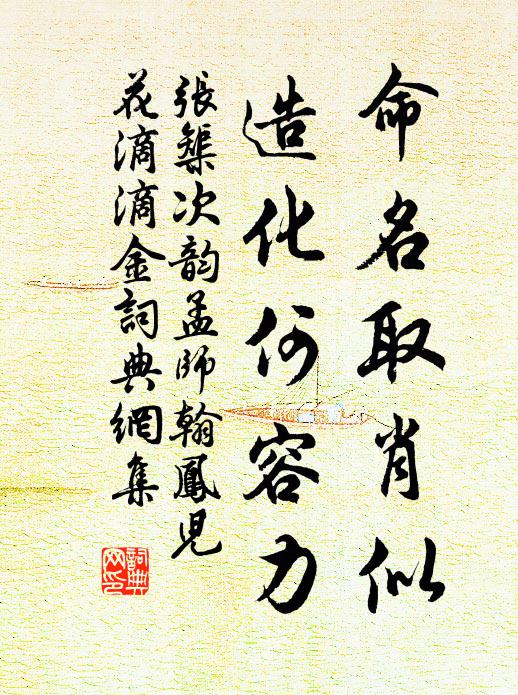 命名取肖似
造化何容力
張榘次韵孟師翰鳳兒
花滴滴金詞典網集
詞典網印